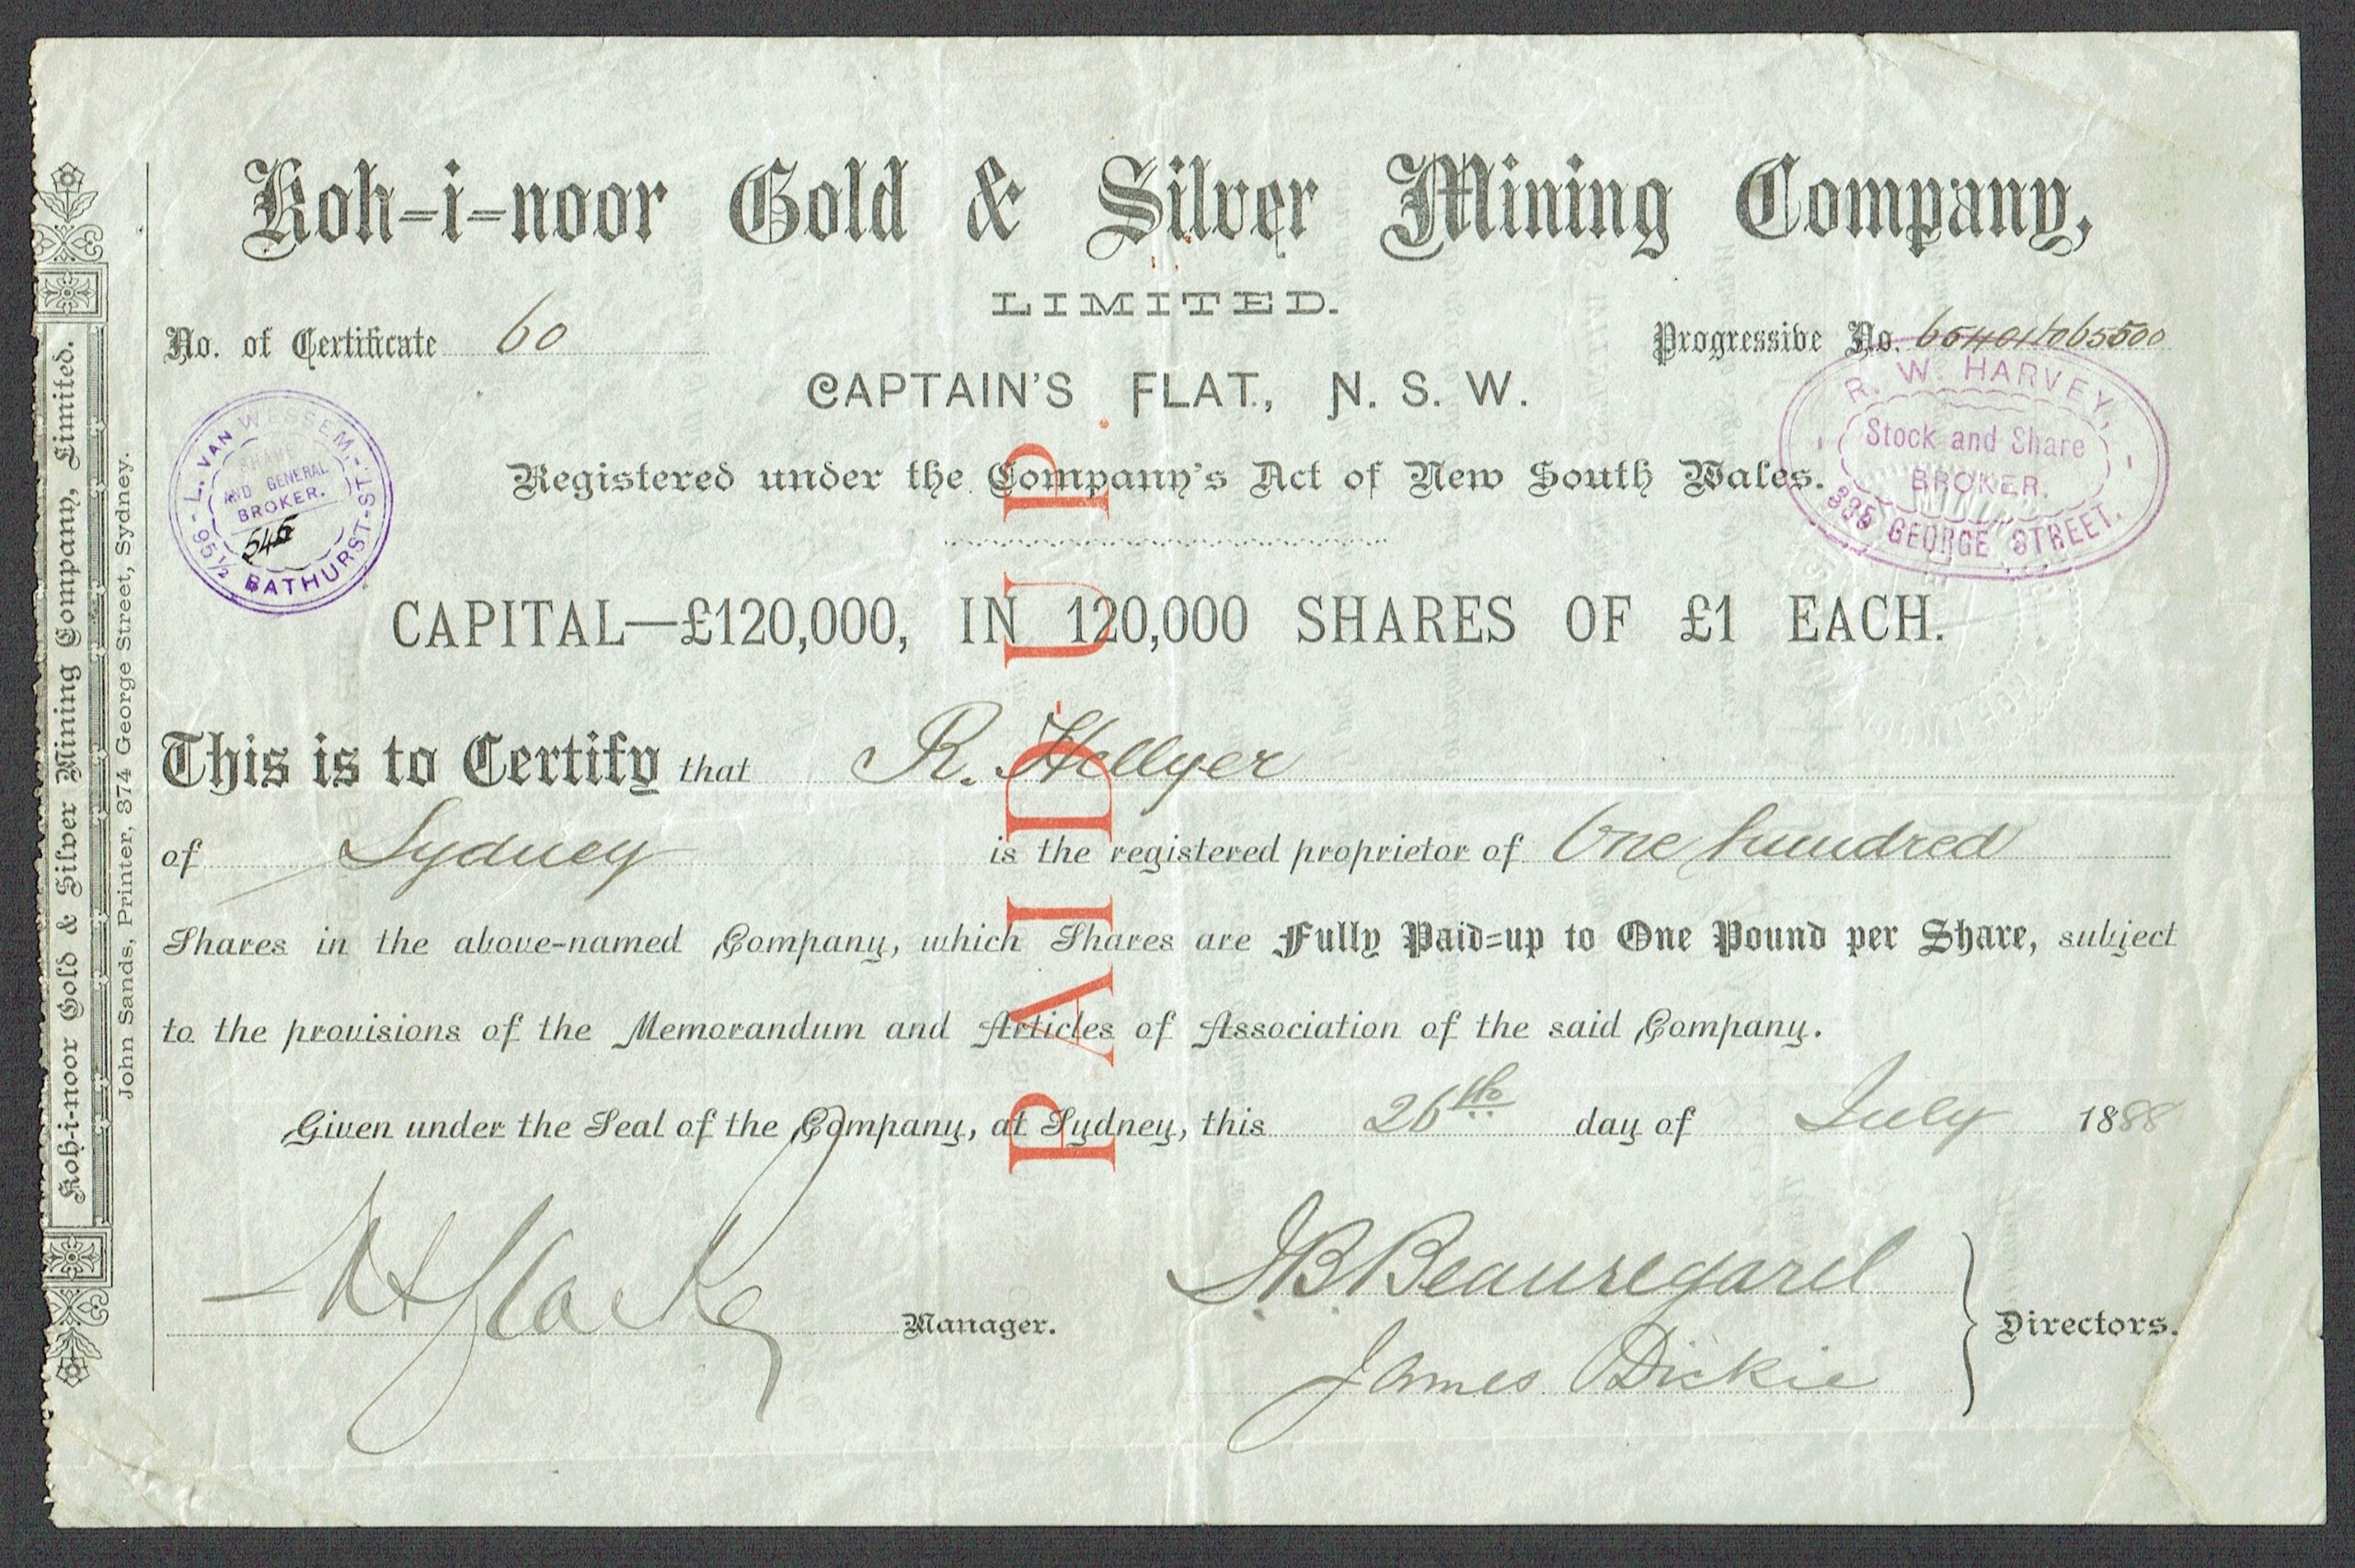 Koh-i-noor Gold & Silver Mining Company,
LIMITED.
No. of Certificate 60
Progressive No. 65401/065500
CAPTAIN'S FLAT, N. S. W.
Registered under the Company's Act of New South Wales.
L. VAN WESSEM.
SHARE
AND GENERAL
BROKER.
545
95½ BATHURST-ST.
R. W. HARVEY,
Stock and Share
BROKER.
395 GEORGE STREET.
CAPITAL—£120,000, IN 120,000 SHARES OF £1 EACH.
PAID-UP.
This is to Certify that R. Hellyer
of Sydney is the registered proprietor of One hundred
Shares in the above-named Company, which Shares are Fully Paid-up to One Pound per Share, subject
to the provisions of the Memorandum and Articles of Association of the said Company.
Given under the Seal of the Company, at Sydney, this 26th day of July 1888
Manager.
J.B. Beauregard
James Dickie
Directors.
Koh-i-noor Gold & Silver Mining Company, Limited.
John Sands, Printer, 374 George Street, Sydney.